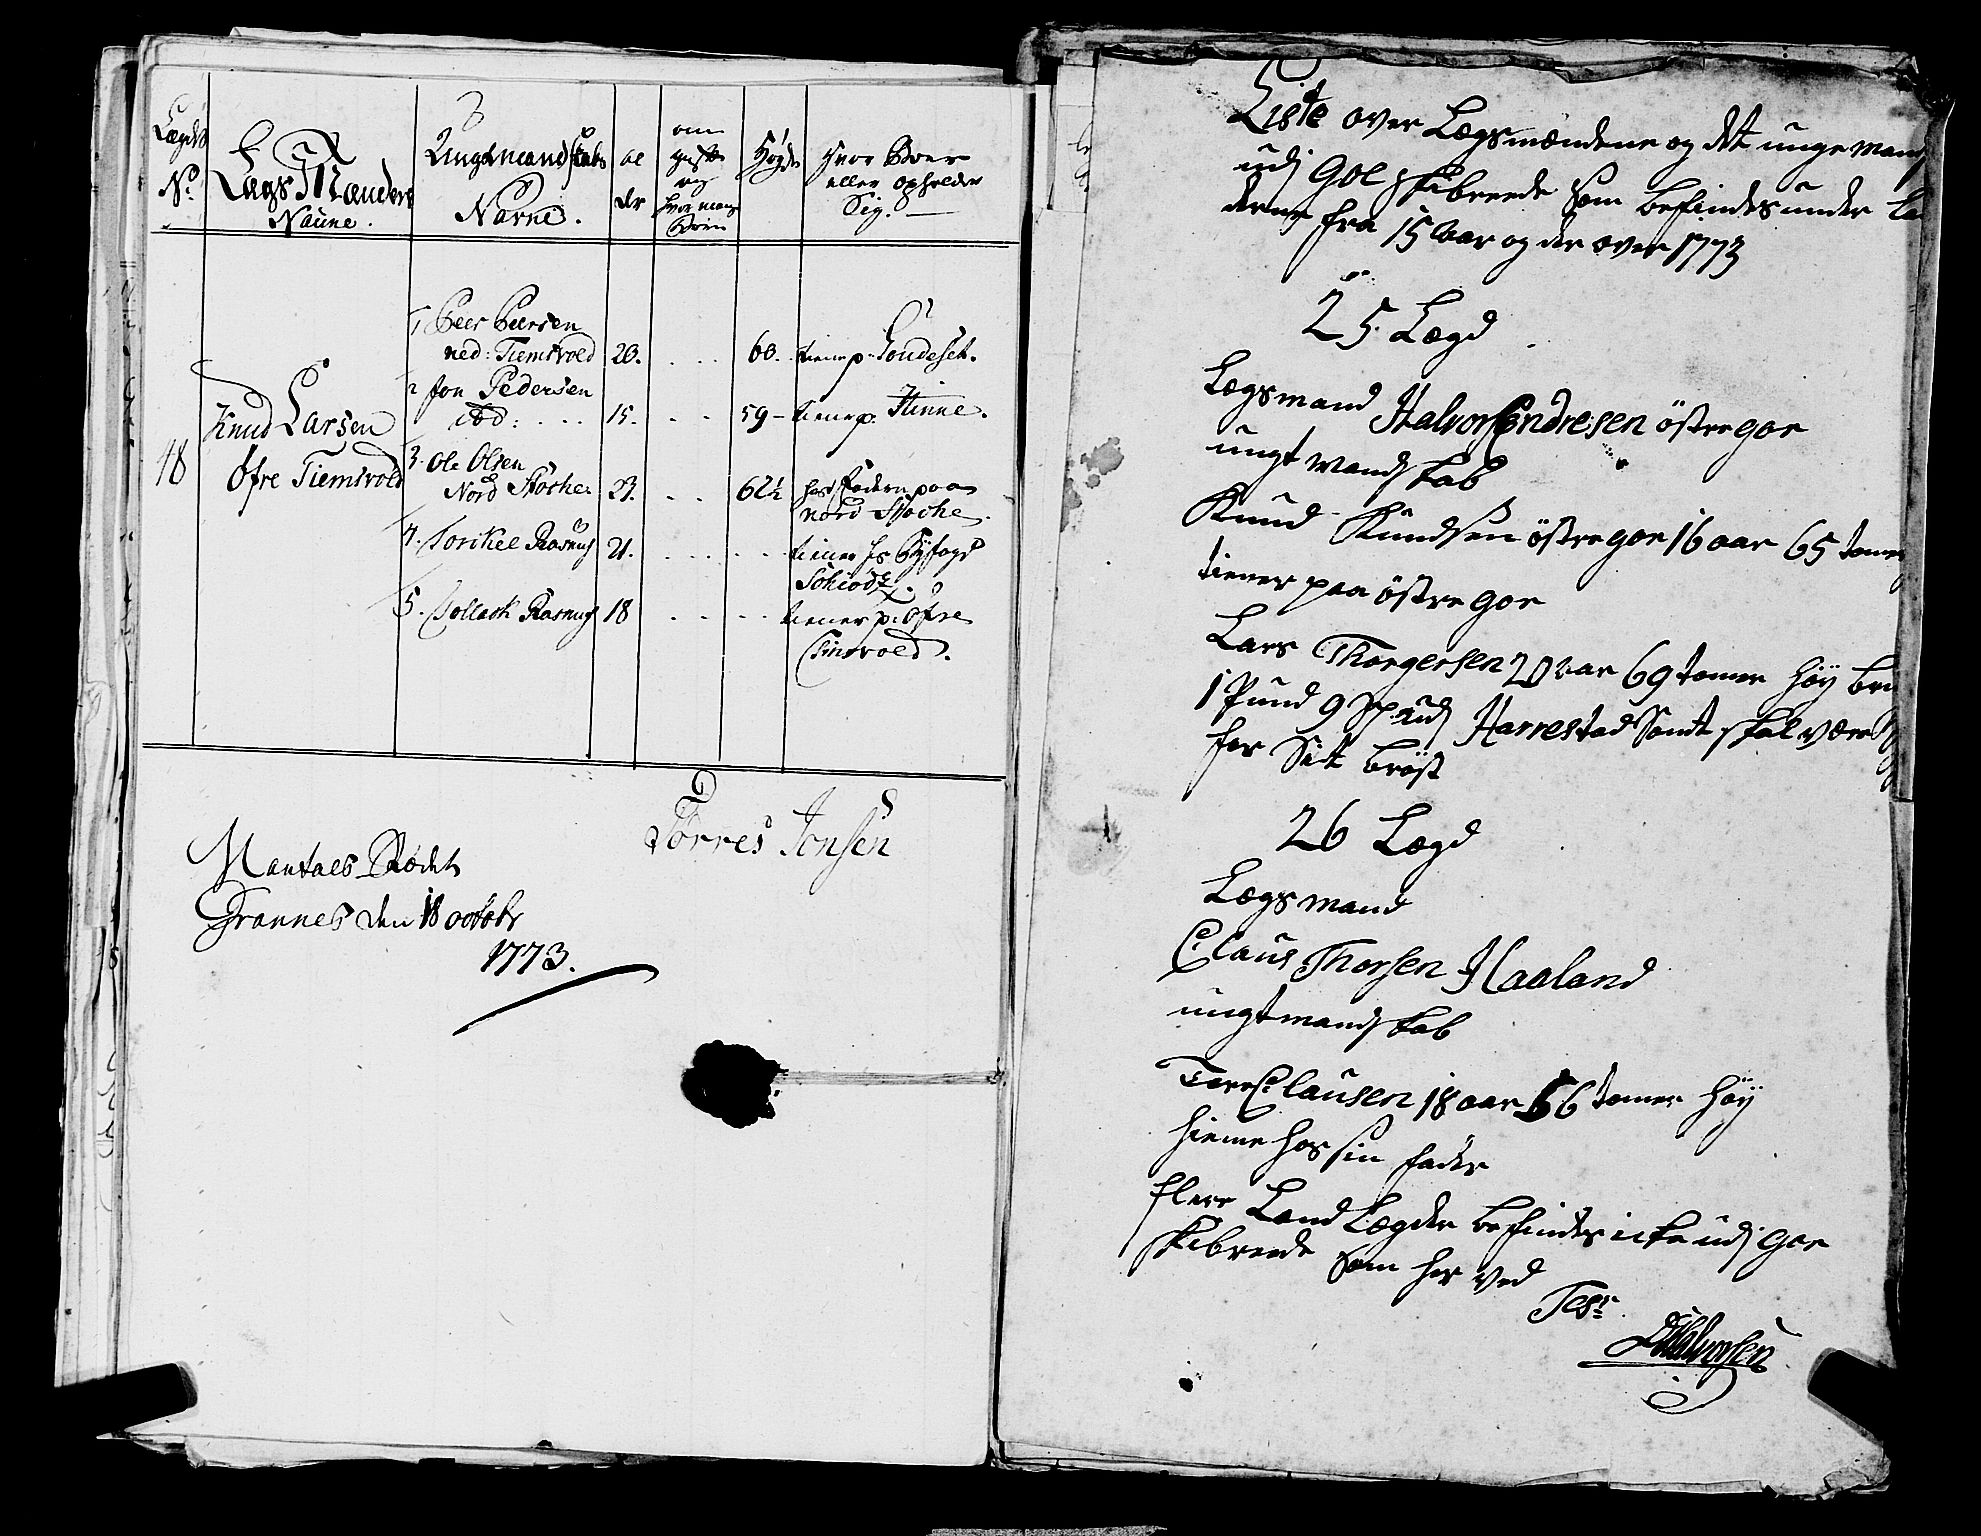 Lægds
No
Lægs Mænders
Naune.
Unge mandskabs
Navne.
al
der
om
gifte
og
hvor mange
Børn
Høyde
Hvor Boer
eller opholder
Sig. —
48
Knud Larsen
Øfre Tiemsvold
1 Peer Peersen
ned: Tiemsvold 20. . . . 60. tiener p. Sondeset.
2 Jon Pedersen
ibd: . . . 15. . . 59 – tiener p. Hinne.
3. Ole Olsen
Nord Stocke. 23. . . 62½ hos Faderen paa
nord Stocke.
4. Torikel Rasmus 21. . . . . . tiener hs Byfogd
Schiødz.
5. Tollack Rasmus 18 . . . . tiener p. Øfre
Timsvold.
Torres Jonsen
Mantals Rødet
Grannes den 18 octobr
1773.
Liste over Lægsmændene og det unge mand
udj Gol Skibreede som befindes under
derne fra 15 aar og der over 1773
25. Lægd
Lægsmand Halvor Endresen östre goe
ungt mandskab
Knud Knudsen östre goe 16 aar 65 tomer
tiener paa östre goe
Lars Thorgersen 20 aar 69 tomer höy
1 Pund 9 udj Harrestad Samt skal være
for Sit bröst
26 Lægd
Lægsmand
Claus Thorsen Haaland
ungt mandskab
Tore Clausen 18 aar 56 tomer höy
hieme hos sin fader
flere Land Lægder befindes icke udj goe
Skibreede som her ved
Testr
Halvorsen